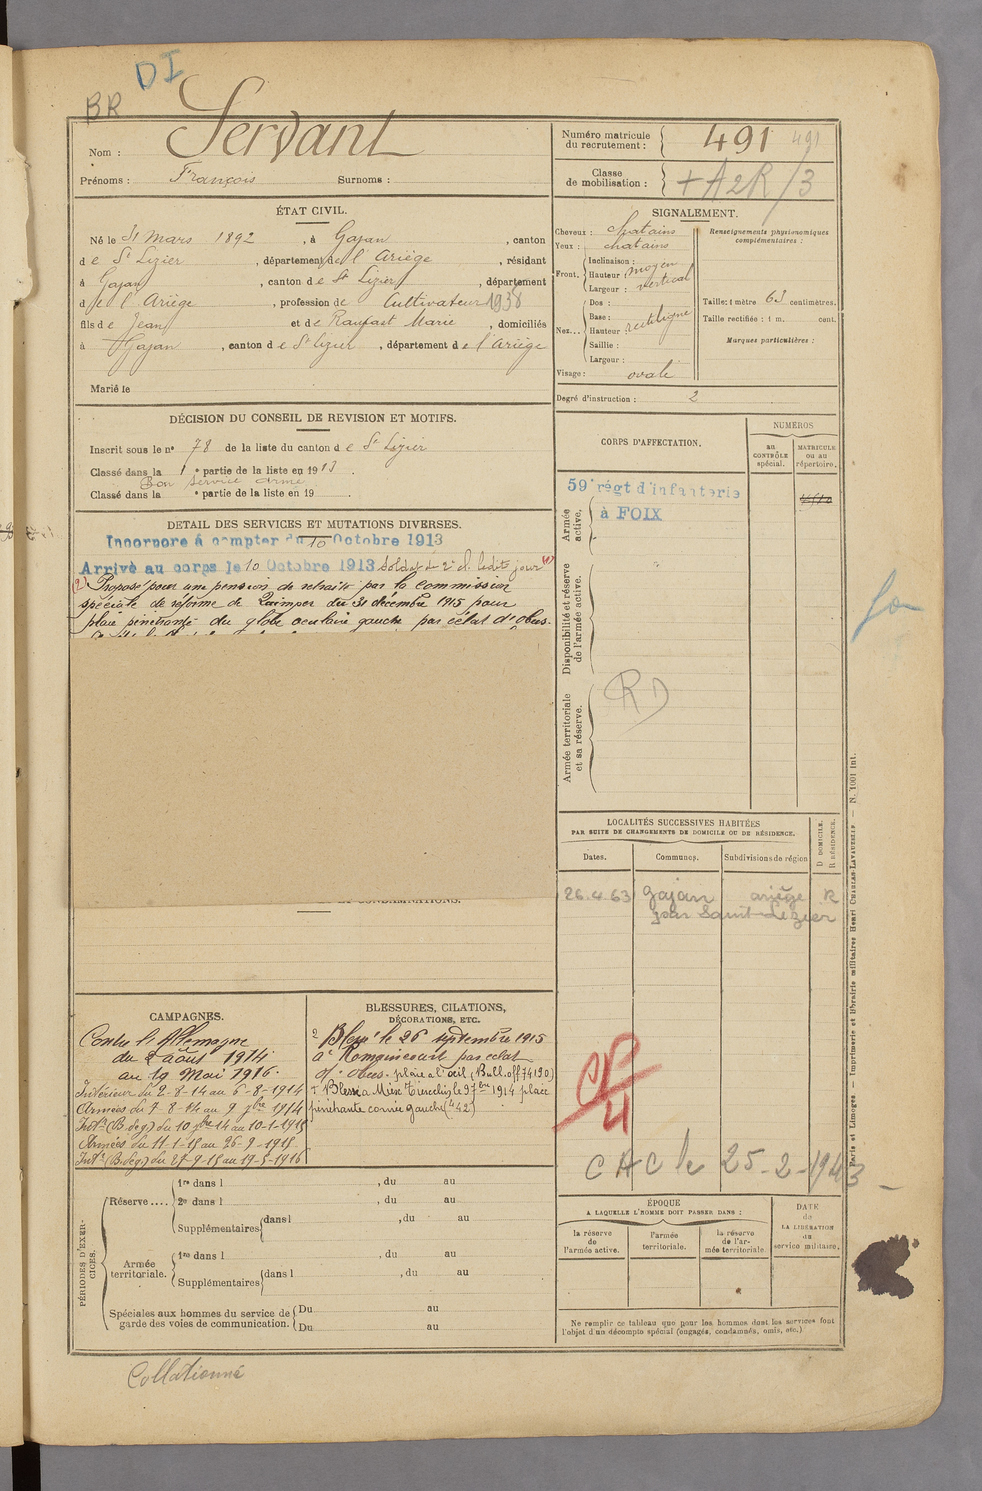 DI
BR
Nom : Servant
Prénoms : François Surnoms :
Numéro matricule du recrutement : 491 491
Classe de mobilisation : + A2R/3
ÉTAT CIVIL.
Né le 31 mars 1892, à Gajan, canton
de St Lizier, département de l'Ariège, résidant
à Gajan, canton de St Lizier, département
d de l'Ariège, profession de Cultivateur 1938
fils de Jean et de Raufast Marie, domiciliés
à Gajan, canton de St Lizier, département de l'Ariège
Marié le
SIGNALEMENT.
Cheveux : chatains
Yeux : chatains
Front. Inclinaison :
Hauteur : moyen
Largeur : vertical
Nez... Dos :
Base :
Hauteur : rectiligne
Saillie :
Largeur :
Visage : ovale
Renseignements physionomiques complémentaires :
Taille : 1 mètre 63 centimètres.
Taille rectifiée : 1 m. cent.
Marques particulières :
Degré d'instruction : 2
DÉCISION DU CONSEIL DE REVISION ET MOTIFS.
Inscrit sous le n° 78 de la liste du canton de St Lizier
Classé dans la 1e partie de la liste en 1913
Bon service armé
Classé dans la e partie de la liste en 19 .
DETAIL DES SERVICES ET MUTATIONS DIVERSES.
Incorporé à compter du 10 Octobre 1913
Arrivé au corps le 10 Octobre 1913 Soldat de 2e cl. ledit jour (1)
(2) Proposé pour une pension de retraite par la commission
spéciale de réforme de Quimper du 31 décembre 1915 pour
plaie pénétrante du globe oculaire gauche par éclat d'obus.
CORPS D'AFFECTATION.
NUMÉROS
au CONTRÔLE spécial.
MATRICULE ou au répertoire.
Armée active.
59e régt d'infanterie
à FOIX
Disponibilité et réserve de l'armée active.
Armée territoriale et sa réserve.
RD
LOCALITÉS SUCCESSIVES HABITÉES
PAR SUITE DE CHANGEMENTS DE DOMICILE OU DE RÉSIDENCE.
Dates. Communes. Subdivisions de région
D DOMICILE.
R RÉSIDENCE.
26.4.63 Gajan ariège R
par Saint-Lizier
ET CONDAMNATIONS.
CAMPAGNES.
Contre l'Allemagne
du 2 août 1914
au 19 Mai 1916.
Intérieur du 2-8-14 au 6-8-1914
Armées du 7-8-14 au 9 7bre 1914
Intr (B. deg.) du 10 7bre 14 au 10-1-1915
Armées du 11-1-15 au 26-9-1915
Intr (B. deg.) du 27-9-15 au 19-5-1916
BLESSURES, CITATIONS,
DÉCORATIONS, ETC.
2 Blessé le 26 septembre 1915
à par éclat
d'obus. plaie à l'œil (Bull. off 74190)
1 Blessé à le 7bre 1914 plaie
pénétrante cornée gauche (442)
CAC le 25-2-1943
PÉRIODES D'EXERCICES.
Réserve.... 1re dans l , du au
2e dans l , du au
Supplémentaires dans l , du au
Armée territoriale. 1re dans l , du au
Supplémentaires dans l , du au
Spéciales aux hommes du service de garde des voies de communication. Du au
Du au
ÉPOQUE
A LAQUELLE L'HOMME DOIT PASSER DANS :
la réserve de l'armée active.
l'armée territoriale.
la réserve de l'armée territoriale.
DATE de LA LIBÉRATION du service militaire.
Ne remplir ce tableau que pour les hommes dont les services font
l'objet d'un décompte spécial (engagés, condamnés, omis, etc.)
Paris et Limoges. — Imprimerie et librairie militaires Henri CHARLES-LAVAUZELLE — N. 1001 Int.
Collationné